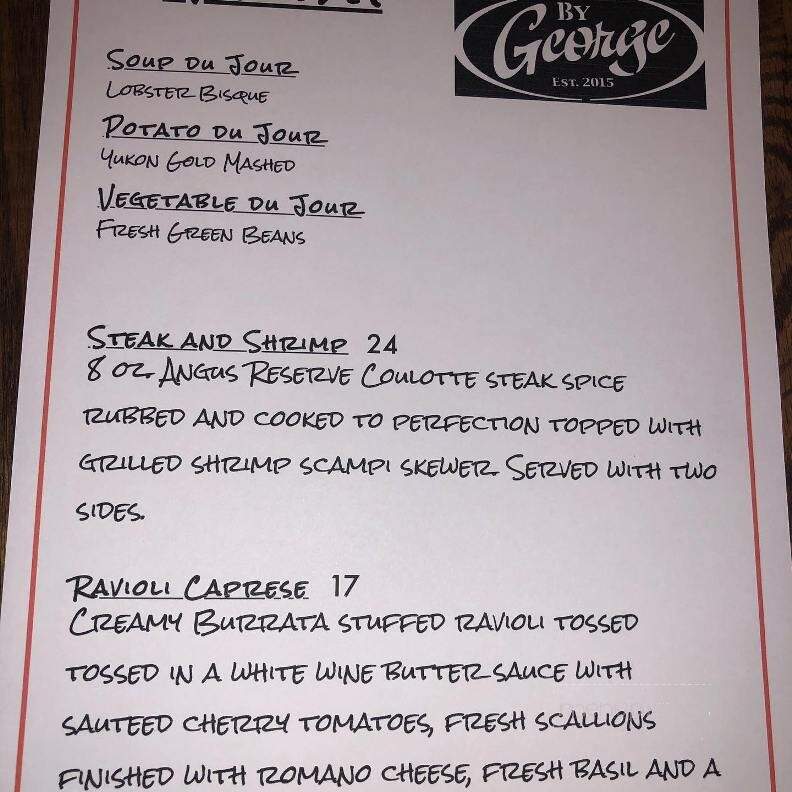 By
George
Est. 2015
Soup du Jour
Lobster Bisque
Potato du Jour
Yukon Gold Mashed
Vegetable du Jour
Fresh Green Beans
Steak and Shrimp 24
8 oz Angus Reserve Coulotte steak spice
rubbed and cooked to perfection topped with
grilled shrimp scampi skewer. Served with two
sides.
Ravioli Caprese 17
Creamy Burrata stuffed ravioli tossed
tossed in a white wine butter sauce with
sauteed cherry tomatoes, fresh scallions
finished with romano cheese, fresh basil and a